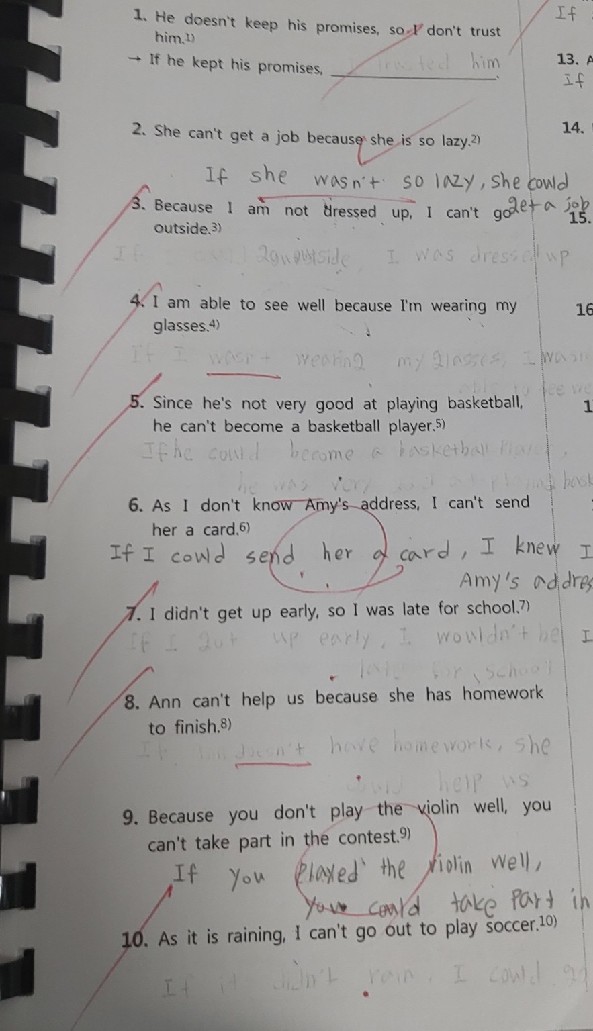 1. He doesn't keep his promises, so I don't trust
him.1)
→ If he kept his promises, trusted him
2. She can't get a job because she is so lazy.2)
If she wasn't so lazy, she could
get a job
3. Because I am not dressed up, I can't go
outside.3)
If I was dressed up
4. I am able to see well because I'm wearing my
glasses.4)
If I wasn't wearing my glasses, I
5. Since he's not very good at playing basketball,
he can't become a basketball player.5)
If he could become a basketball
he was very
6. As I don't know Amy's address, I can't send
her a card.6)
If I could send her a card, I knew
Amy's addres
7. I didn't get up early, so I was late for school.7)
If I got up early, I wouldn't be
late for school
8. Ann can't help us because she has homework
to finish.8)
If doesn't have homework, she
help us
9. Because you don't play the violin well, you
can't take part in the contest.9)
If you played the violin well,
you could take part in
10. As it is raining, I can't go out to play soccer.10)
If it didn't rain, I could
If
13. A
If
14.
15.
16
1
I
I